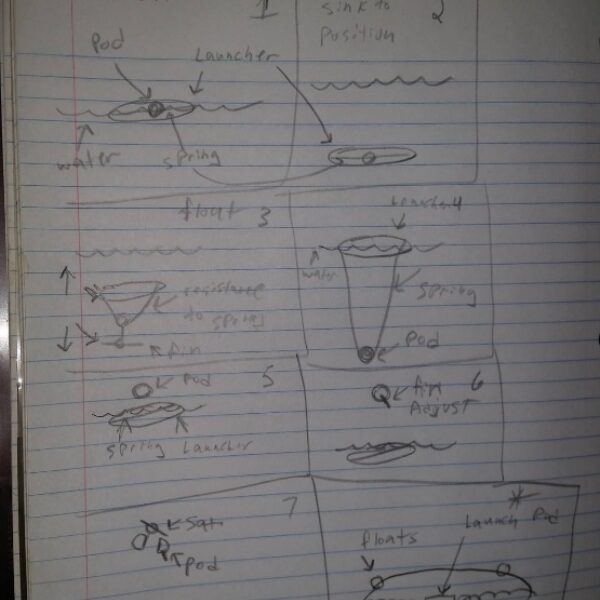 1
Pod
Launcher
water
spring
sink to
position
2
float 3
resistance
to spring
fin
Launcher 4
water
Spring
Pod
5
Pod
Spring Launcher
6
fin
Adjust
7
Sat
Pod
Launch Pod
floats